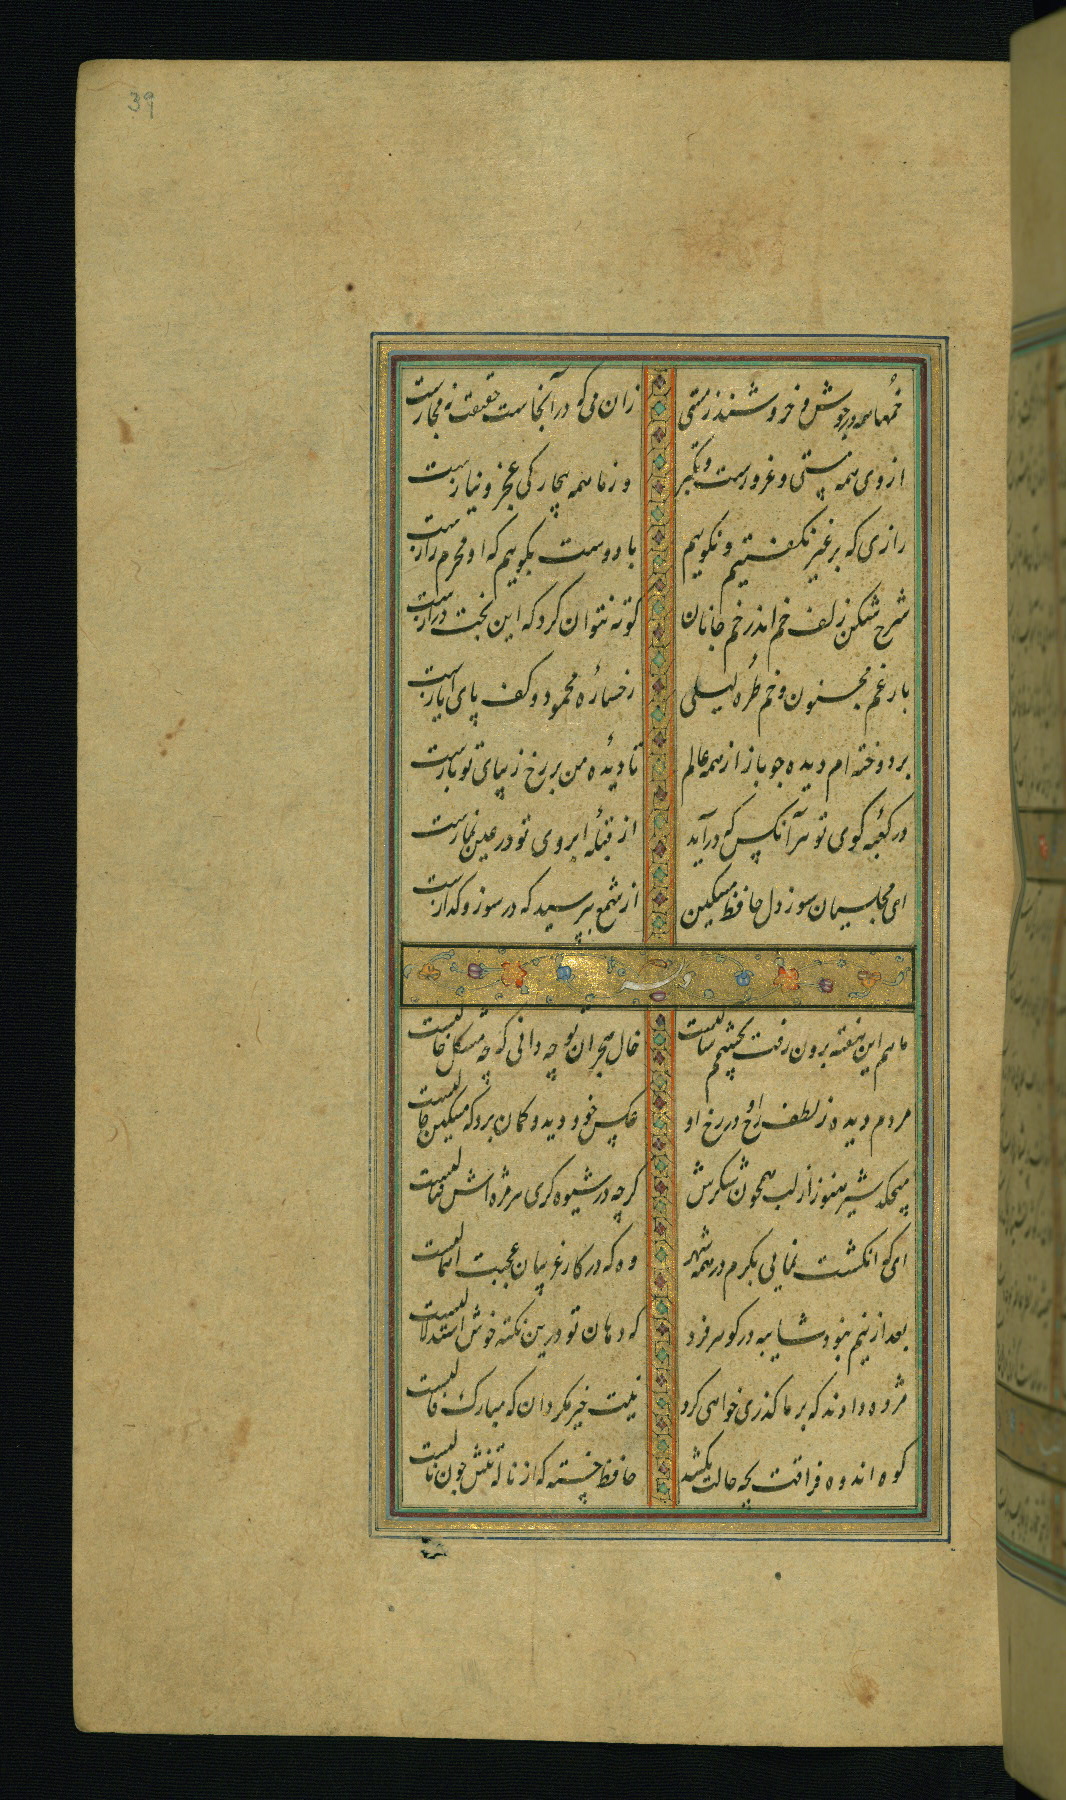 39
خمها همه در جوش و خروشند ز مستی
زان می که در آنجاست حقیقت نه مجازست
از وی همه مستی و غرورست و تکبر
وز ما همه بیچارگی و عجز و نیازست
رازی که بر غیر نگفتیم و نگوییم
با دوست بگوییم که او محرم رازست
شرح شکن زلف خم اندر خم جانان
کوته نتوان کرد که این درازست
بار غم مجنون و خم طره لیلی
رخساره محمود و کف پای ایازست
بر دوخته ام دیده چو باز از همه عالم
تا دیده من بر رخ زیبای تو بازست
در کعبه کوی تو هر آنکس که درآید
از قبله ابروی تو در عین نمازست
ای مجلسیان سوز دل حافظ مسکین
از شمع بپرسید که در سوز و گدازست
وله
ماهم این هفته برون رفت بچشمم سالیست
حال هجران تو چه دانی که چه مشکل حالیست
مردم دیده ز لطف رخ او در رخ او
عکس خود دید و گمان برد که مشکین خالیست
میچکد شیر هنوز از لب همچون شکرش
گرچه در شیوه گری هر مژه اش قتالیست
ای که انگشت نمایی بکرم در همه شهر
وه که در کار غریبان عجبت اهمالیست
بعد ازینم نبود شایبه در گوهر فرد
که دهان تو درین نکته خوش استدلالیست
مژده دادند که بر ما گذری خواهی کرد
نیت خیر مگردان که مبارک فالیست
کوه اندوه فراقت بچه حالت بکشد
حافظ خسته که از ناله تنش چون نالیست